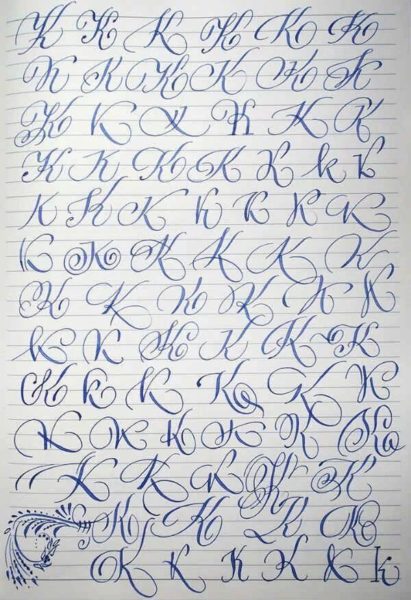 K K K K K K
K K K K K K
K K K K K K
K K K K K k k
K K K K K K K
K K K K K K
K K K K K K
k K K K K K
K k k K K K
K K K K K K
K K K K K
K K K K
K K K K K k